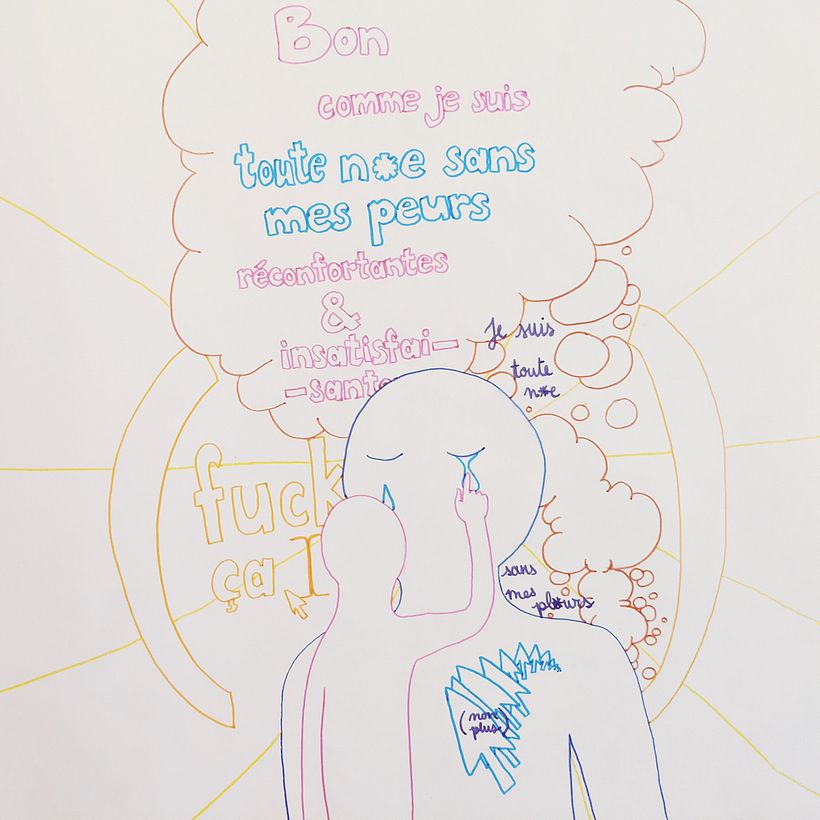 Bon
comme je suis
toute n*e sans
mes peurs
réconfortantes
&
insatisfai-
-sante
Je suis
toute
n*e
fuck
ça
sans
mes
pl*urs
(non
plus)